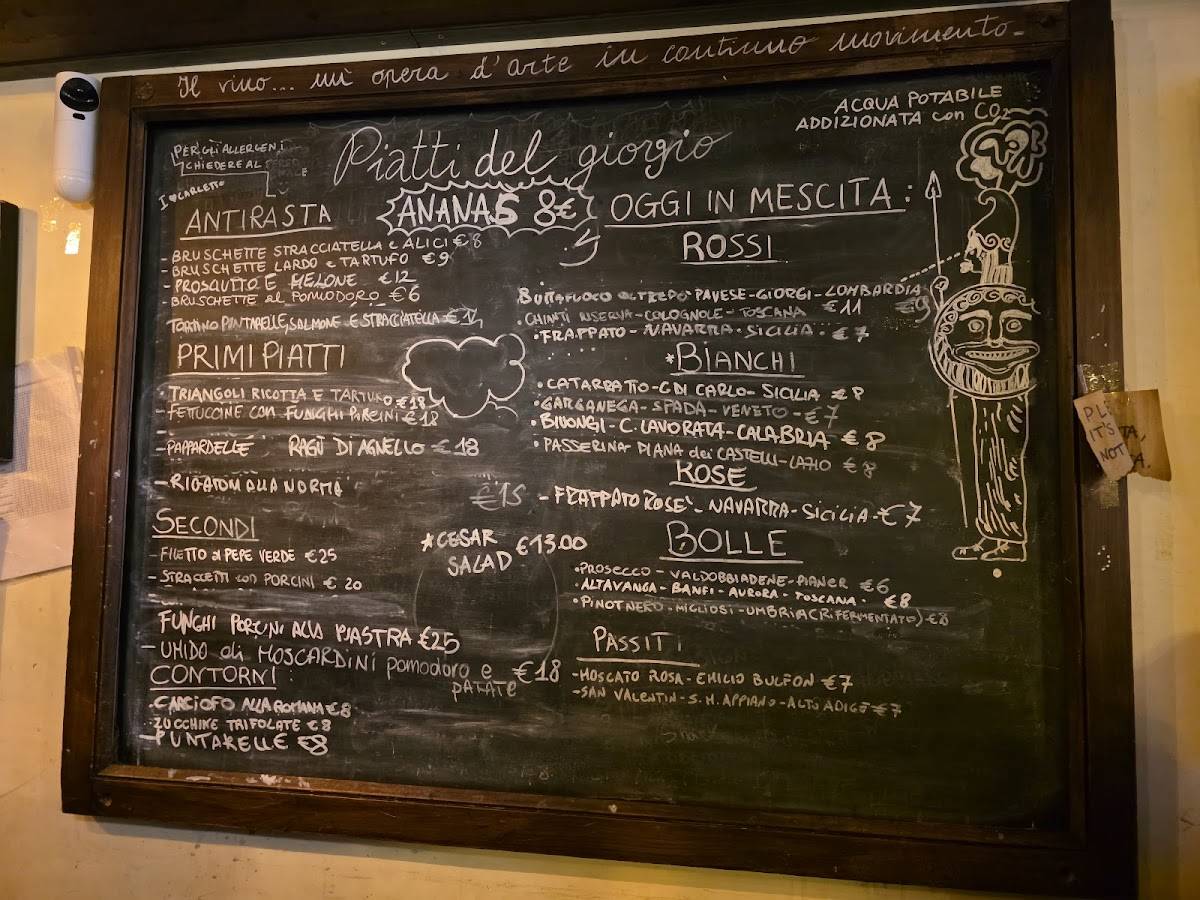 Il vino... un'opera d'arte in continuo movimento-
PER GLI ALLERGENI
CHIEDERE AL
I ♥ CARLETTO
Piatti del giorgio
ANANAS 8€
ANTIRASTA
- BRUSCHETTE STRACCIATELLA e ALICI € 8
- BRUSCHETTE LARDO e TARTUFO €9
- PROSCIUTTO E MELONE €12
- BRUSCHETTE al POMODORO €6
TORTINO PUNTARELLE, SALMONE E STRACCIATELLA €
PRIMI PIATTI
- TRIANGOLI RICOTTA E TARTUFO €18
- FETTUCCINE con FUNGHI PORCINI €18
- PAPPARDELLE RAGÙ DI AGNELLO € 18
- RIGATONI ALLA NORMA €15
SECONDI
- FILETTO al PEPE VERDE €25
- STRACCETTI con PORCINI € 20
FUNGHI PORCINI ALLA PIASTRA €25
- UMIDO di MOSCARDINI pomodoro e €18
patate
*CESAR
SALAD €13.00
CONTORNI:
- CARCIOFO ALLA ROMANA €8
- ZUCCHINE TRIFOLATE €8
- PUNTARELLE €8
ACQUA POTABILE
ADDIZIONATA con CO2
OGGI IN MESCITA:
ROSSI
BUTTAFUOCO OLTREPÒ PAVESE-GIORGI-LOMBARDIA €9
- CHIANTI RISERVA-COLOGNOLE-TOSCANA €11
• FRAPPATO-NAVARRA-SICILIA. € 7
*BIANCHI
• CATARRATTO-G DI CARLO-SICILIA € 8
• GARGANEGA-SPADA-VENETO-€7
• BIVONGI-C. LAVORATA-CALABRIA € 8
• PASSERINA PIANA dei CASTELLI-LAZIO € 8
ROSE
- FRAPPATO ROSE'-NAVARRA-SICILIA-€7
BOLLE
• PROSECCO-VALDOBBIADENE-PIANER €6
• ALTAVANGA-BANFI-AURORA-TOSCANA. €8
• PINOT NERO-MIGLIOSI-UMBRIA (RIFERMENTATO) €8
PASSITI
- MOSCATO ROSA-EMILIO BULFON €7
- SAN VALENTIN-S.M. APPIANO-ALTO ADIGE €7
IT'S
NOT